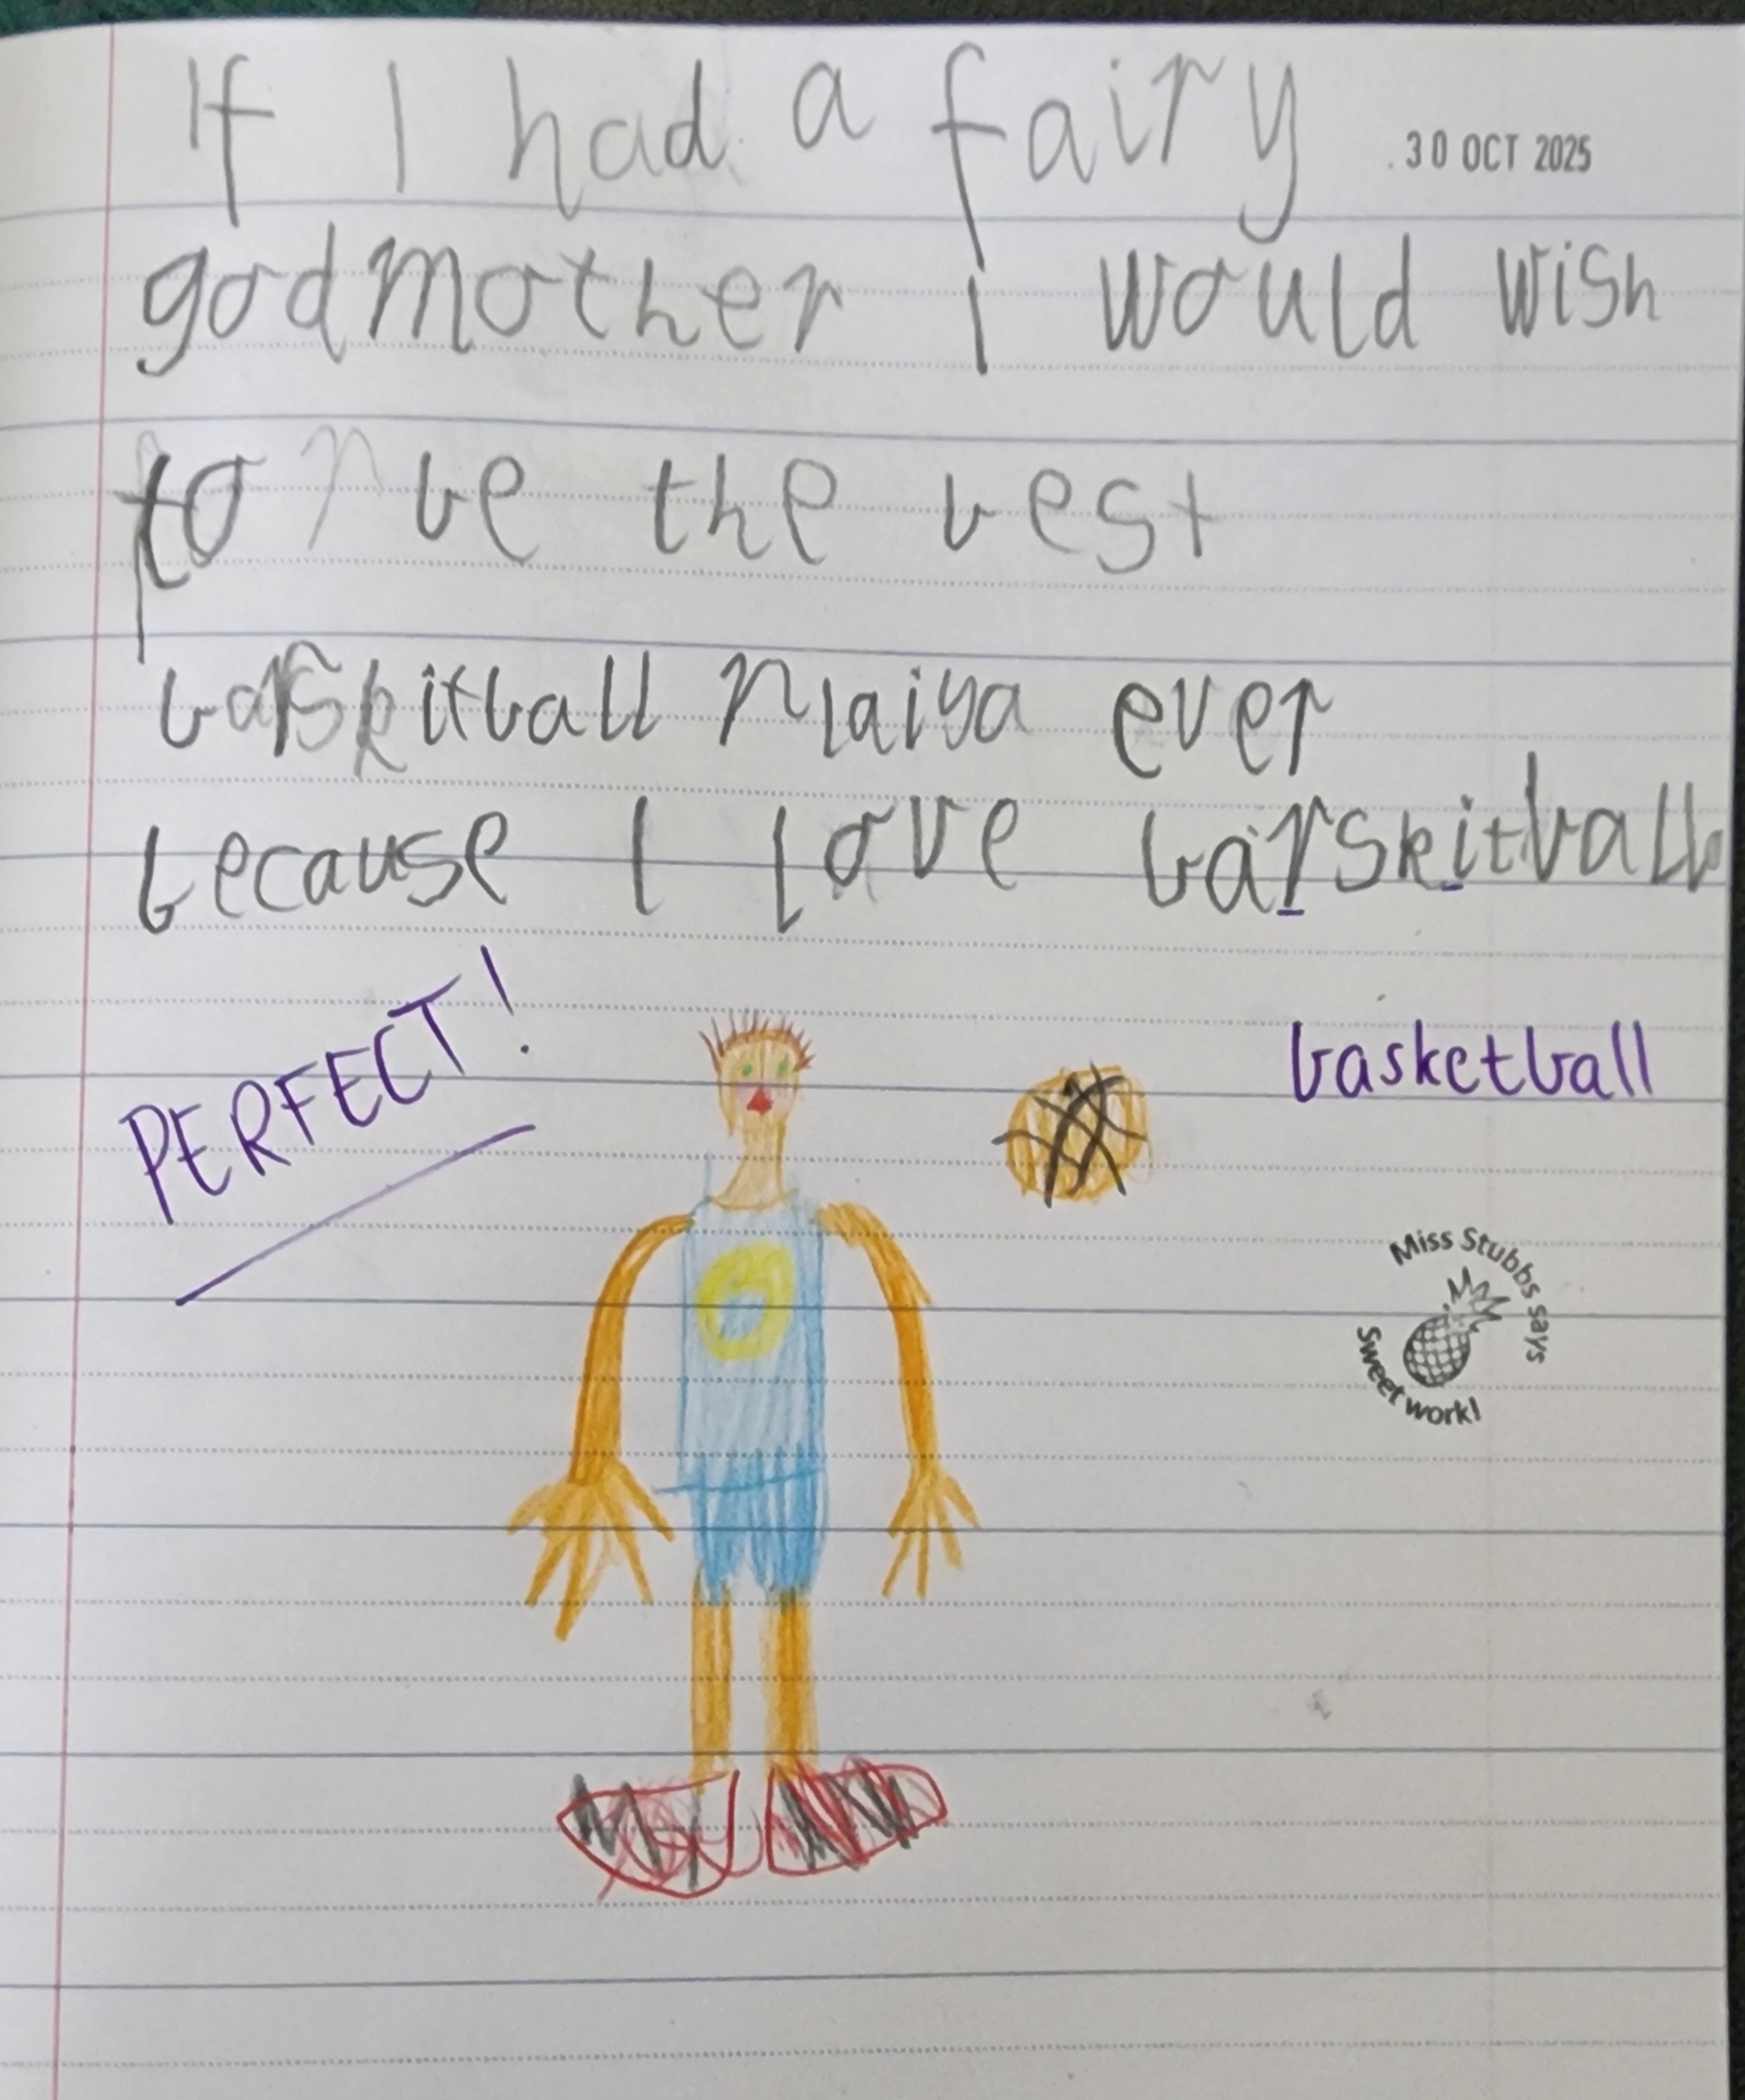 If I had a fairy
30 OCT 2025
godmother I would wish
to be the best
barskitball plaiya ever
because I love barskitball
PERFECT!
basketball
Miss Stubbs says
Sweet work!